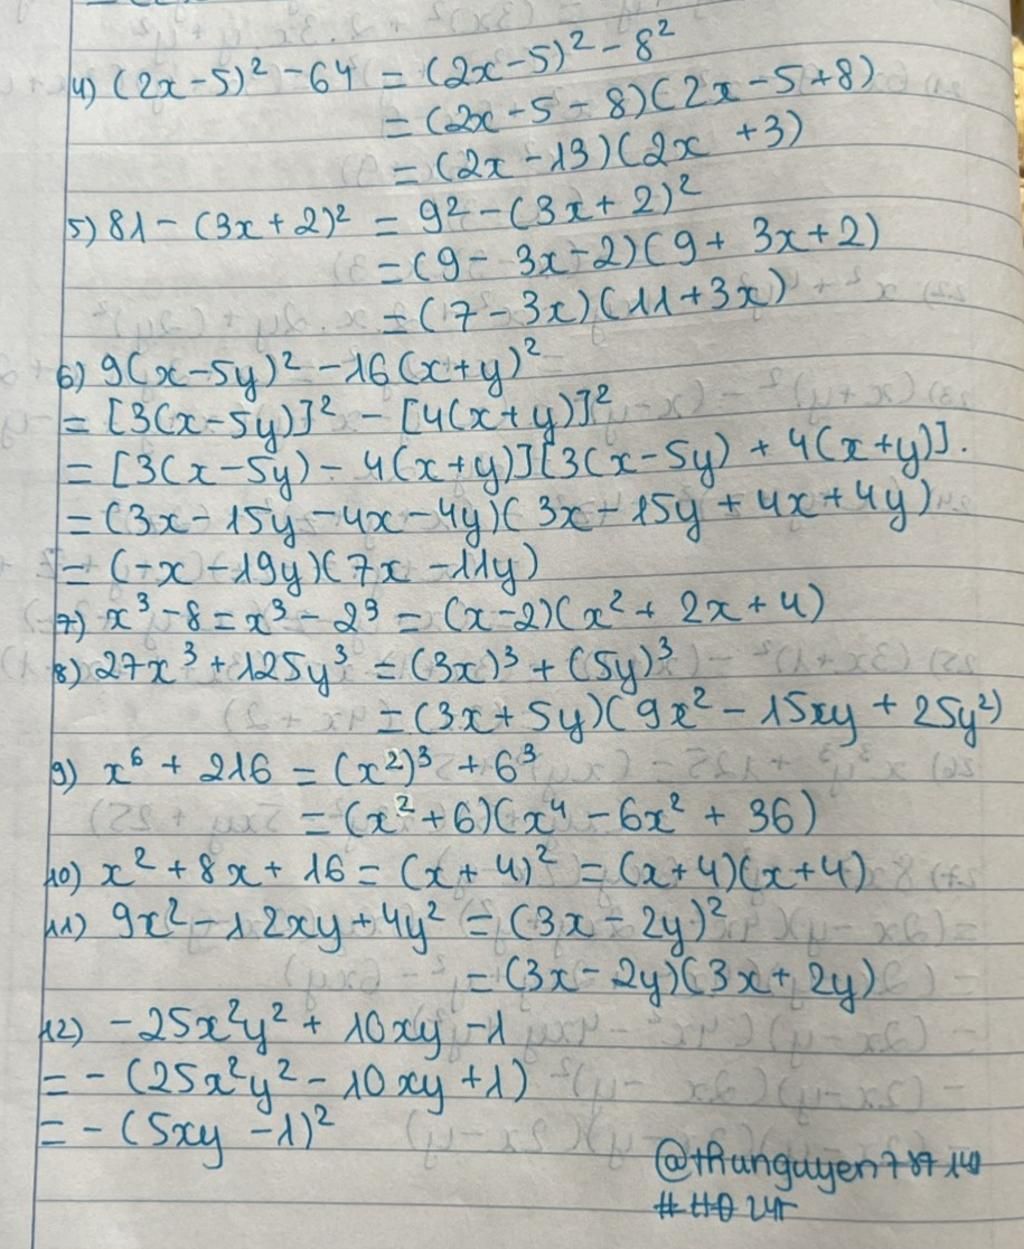 4) (2x-5)² - 64 = (2x-5)² - 8²
= (2x-5-8)(2x-5+8)
= (2x-13)(2x +3)
5) 81 - (3x+2)² = 9² - (3x+2)²
= (9 - 3x-2)(9 + 3x+2)
= (7 - 3x)(11+3x)
6) 9(x-5y)² - 16(x+y)²
= [3(x-5y)]² - [4(x+y)]²
= [3(x-5y) - 4(x+y)][3(x-5y) + 4(x+y)].
= (3x - 15y - 4x - 4y)(3x - 15y + 4x + 4y)
= (-x - 19y)(7x - 11y)
7) x³ - 8 = x³ - 2³ = (x-2)(x² + 2x + 4)
8) 27x³ + 125y³ = (3x)³ + (5y)³
= (3x + 5y)(9x² - 15xy + 25y²)
9) x⁶ + 216 = (x²)³ + 6³
= (x² + 6)(x⁴ - 6x² + 36)
10) x² + 8x + 16 = (x+4)² = (x+4)(x+4)
11) 9x² - 12xy + 4y² = (3x - 2y)²
= (3x - 2y)(3x + 2y)
12) -25x²y² + 10xy - 1
= - (25x²y² - 10xy + 1)
= - (5xy - 1)²